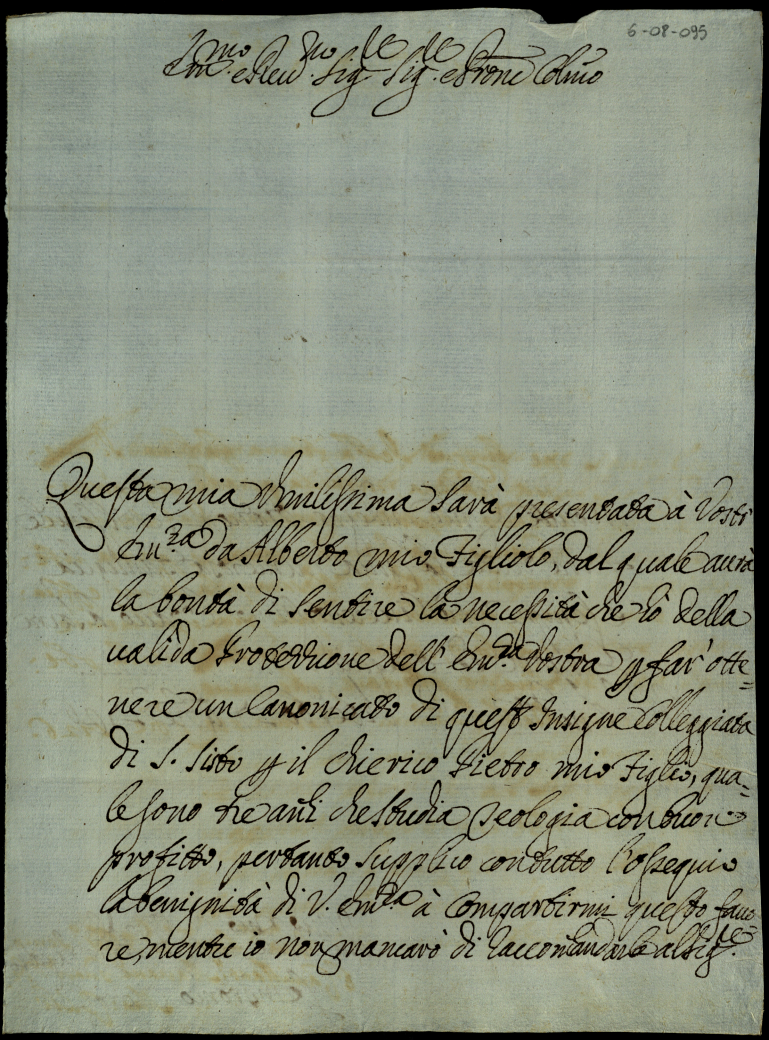 6-08-095
Em.mo e Rev.mo Sig.re Sig.re e Prone Colmo
Questa mia Umilissima sarà presentata à Vostr
Em.za da Alberto mio Figliolo, dal quale aurà
la bontà di sentire la necessità che hò della
valida Protettione dell' Em.za Vostra p far' otte=
nere un Canonicato di quest Insigne Colleggiata
di S. Sisto p il Chierico Pietro mio Figlio, qua=
le sono tre anni che studia Teologia con buon
profitto, pertanto supplico con tutto l'ossequio
la benignità di V. Em.za à compartirmi questo favo=
re, mentre io non mancarò di raccomandarle al Sig.re